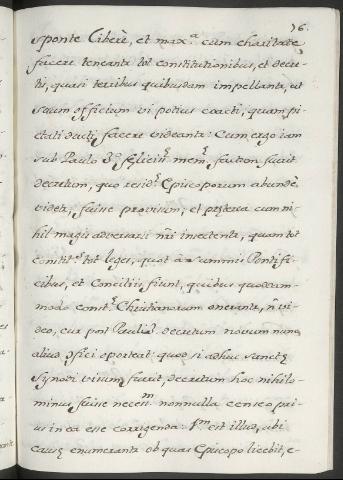 76.
sponte liberè, et max.ª cum charitate
facere teneant.r tot constitutionibus, et decre-
tis, quasi terribus quibusdam impellant.r, ut
suum officium vi potius coacti, quam pi-
etati ducti facere videant.r: Cum ergo iam
sub Paulo 3.º felicis mem. scriptum fuerit
decretum, quo resid. Episcoporum abundè
videt.r fuisse provisum, et præterea cum ni-
hil magis adversarii nri insectent.r, quam tot
constit.s tot leges, quot à summis Pontifi-
cibus, et Conciliis fiunt, quibus quodam-
modo const. Christianorum onerant.r, ñ vi-
deo, cur post Pauli decretum novum nunc
aliud effici oporteat: quod si adhuc sanctę
Synodi visum fuerit, decretum hoc nihilo-
minus fuisse necess.m nonnulla censeo pri-
us in ea esse corrigenda: P.m est illud, ubi
causę enumerant.r ob quas Episcopo licebit, e-